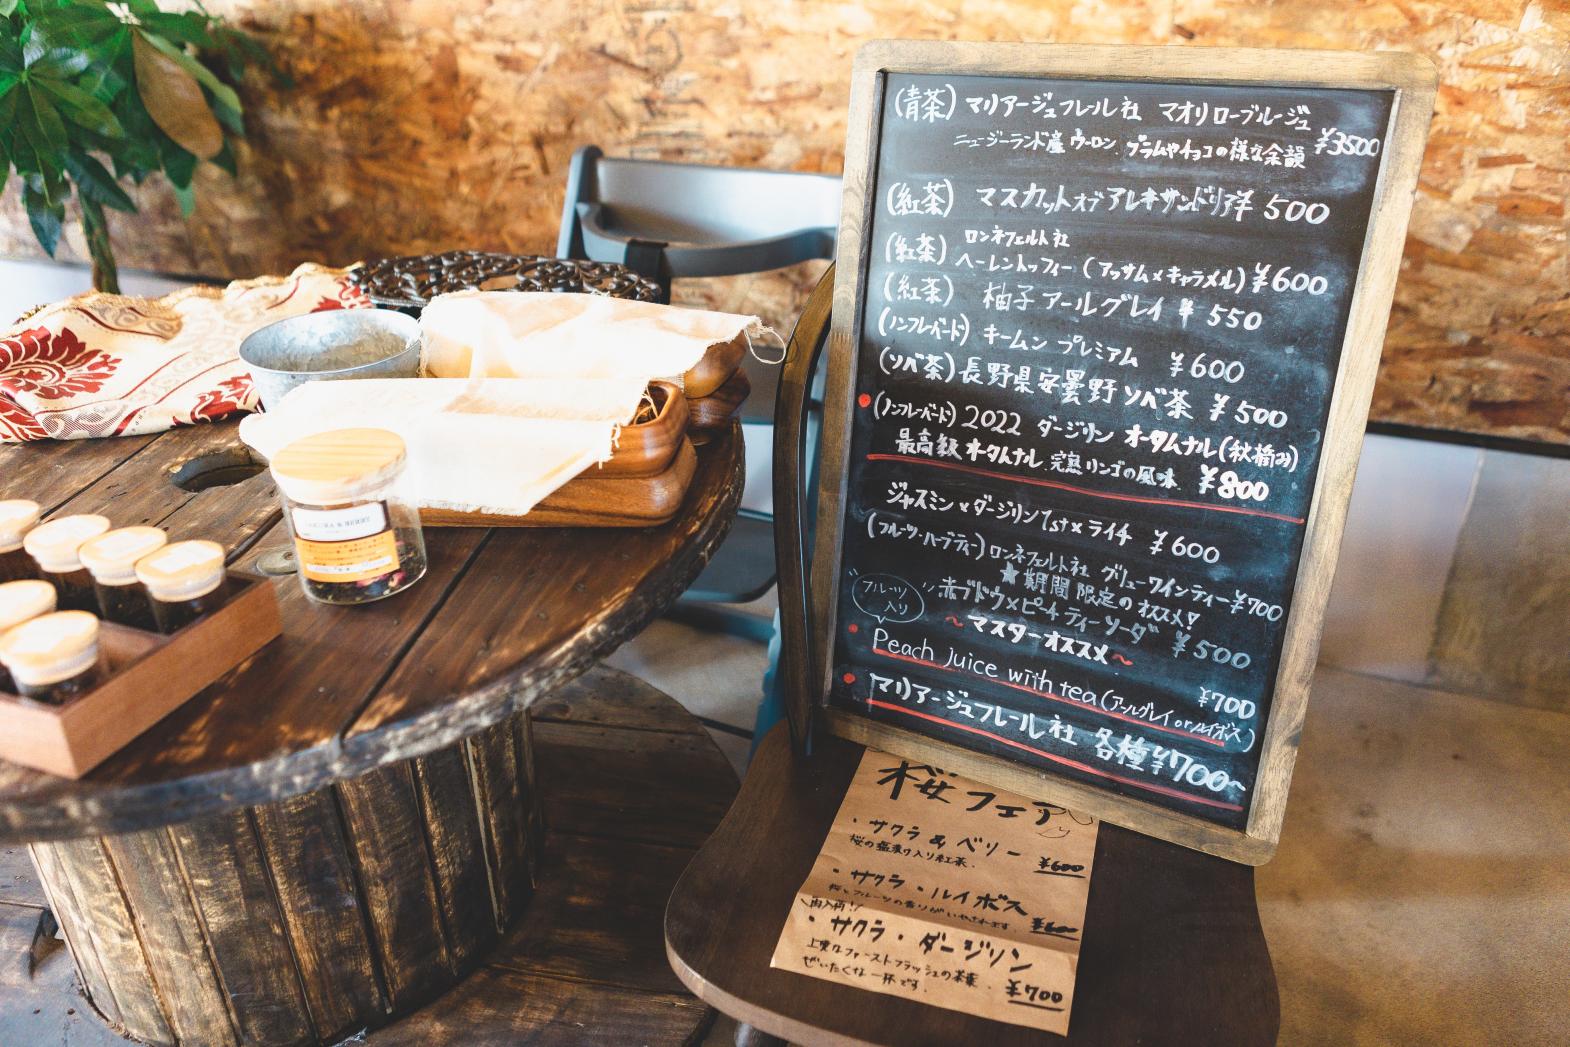 (青茶) マリアージュフレール社 マオリローブルージュ
ニュージーランド産 ウーロン プラムやチョコの様な余韻 ¥3500
(紅茶) マスカットオブアレキサンドリア ¥500
ロンネフェルト社
(紅茶) ヘーレントッフィー (アッサム×キャラメル) ¥600
(紅茶) 柚子アールグレイ ¥550
(ノンフレーバード) キームン プレミアム ¥600
(ソバ茶) 長野県安曇野ソバ茶 ¥500
(ノンフレーバード) 2022 ダージリン オータムナル (秋摘み)
最高級オータムナル 完熟リンゴの風味 ¥800
ジャスミン×ダージリン1st×ライチ ¥600
(フルーツ・ハーブティー) ロンネフェルト社 グリューワインティー ¥700
★期間限定のオススメ!
フルーツ
入り
赤ブドウ×ピーチティーソーダ ¥500
〜マスターオススメ〜
Peach juice with tea (アールグレイ or ルイボス) ¥700
マリアージュフレール社 各種 ¥700〜
桜フェア
・サクラ & ベリー
桜の塩漬け入り紅茶. ¥600
・サクラ・ルイボス
桜とフルーツの香りがいやされます ¥600
再入荷!!
・サクラ・ダージリン
上質なファーストフラッシュの茶葉
ぜいたくな一杯です. ¥700
SAKURA & BERRY